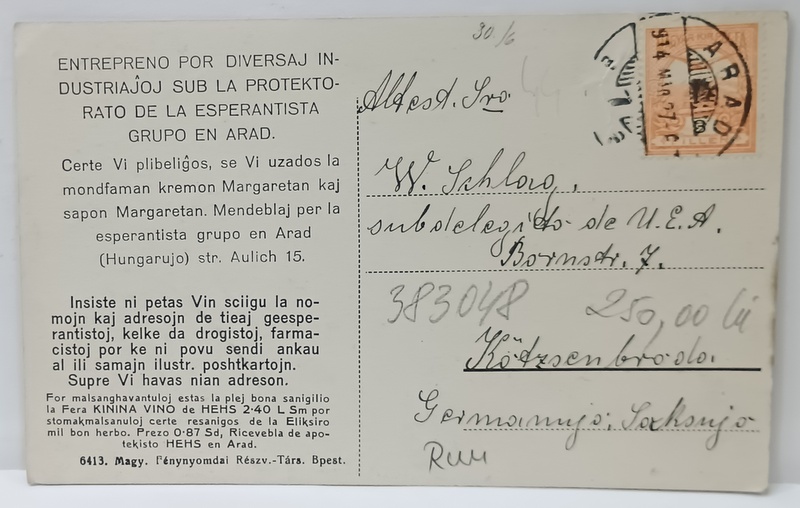 ENTREPRENO POR DIVERSAJ IN-
DUSTRIAĴOJ SUB LA PROTEKTO-
RATO DE LA ESPERANTISTA
GRUPO EN ARAD.
Certe Vi plibeliĝos, se Vi uzados la
mondfaman kremon Margaretan kaj
sapon Margaretan. Mendeblaj per la
esperantista grupo en Arad
(Hungarujo) str. Aulich 15.
Insiste ni petas Vin sciigu la no-
mojn kaj adresojn de tieaj geespe-
rantistoj, kelke da drogistoj, farma-
cistoj por ke ni povu sendi ankau
al ili samajn ilustr. poshtkartojn.
Supre Vi havas nian adreson.
For malsanghavantuloj estas la plej bona sanigilio
la Fera KININA VINO de HEHS 2·40 L Sm por
stomakmalsanuloj certe resanigos de la Eliksiro
mil bon herbo. Prezo 0·87 Sd, Ricevebla de apo-
tekisto HEHS en Arad.
6413. Magy. Fénynyomdai Részv.-Társ. Bpest.
30./6
ARAD
914
Altest. Sro
W. Schlag,
subdelegito de U.E.A.
Bornstr. 7.
383048 250,00 lii
Kötzsenbroda.
Germanujo, Saksujo